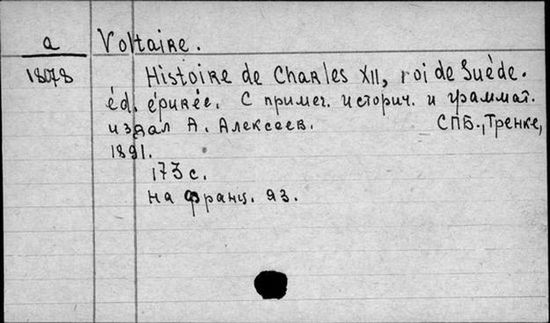 a Voltaire.
18078 Histoire de Charles XII, roi de Suède.
éd. épurée. С примеч. историч. и граммат.
издал А. Алексеев. СПБ., Тренке,
1891.
173 с.
на франц. яз.